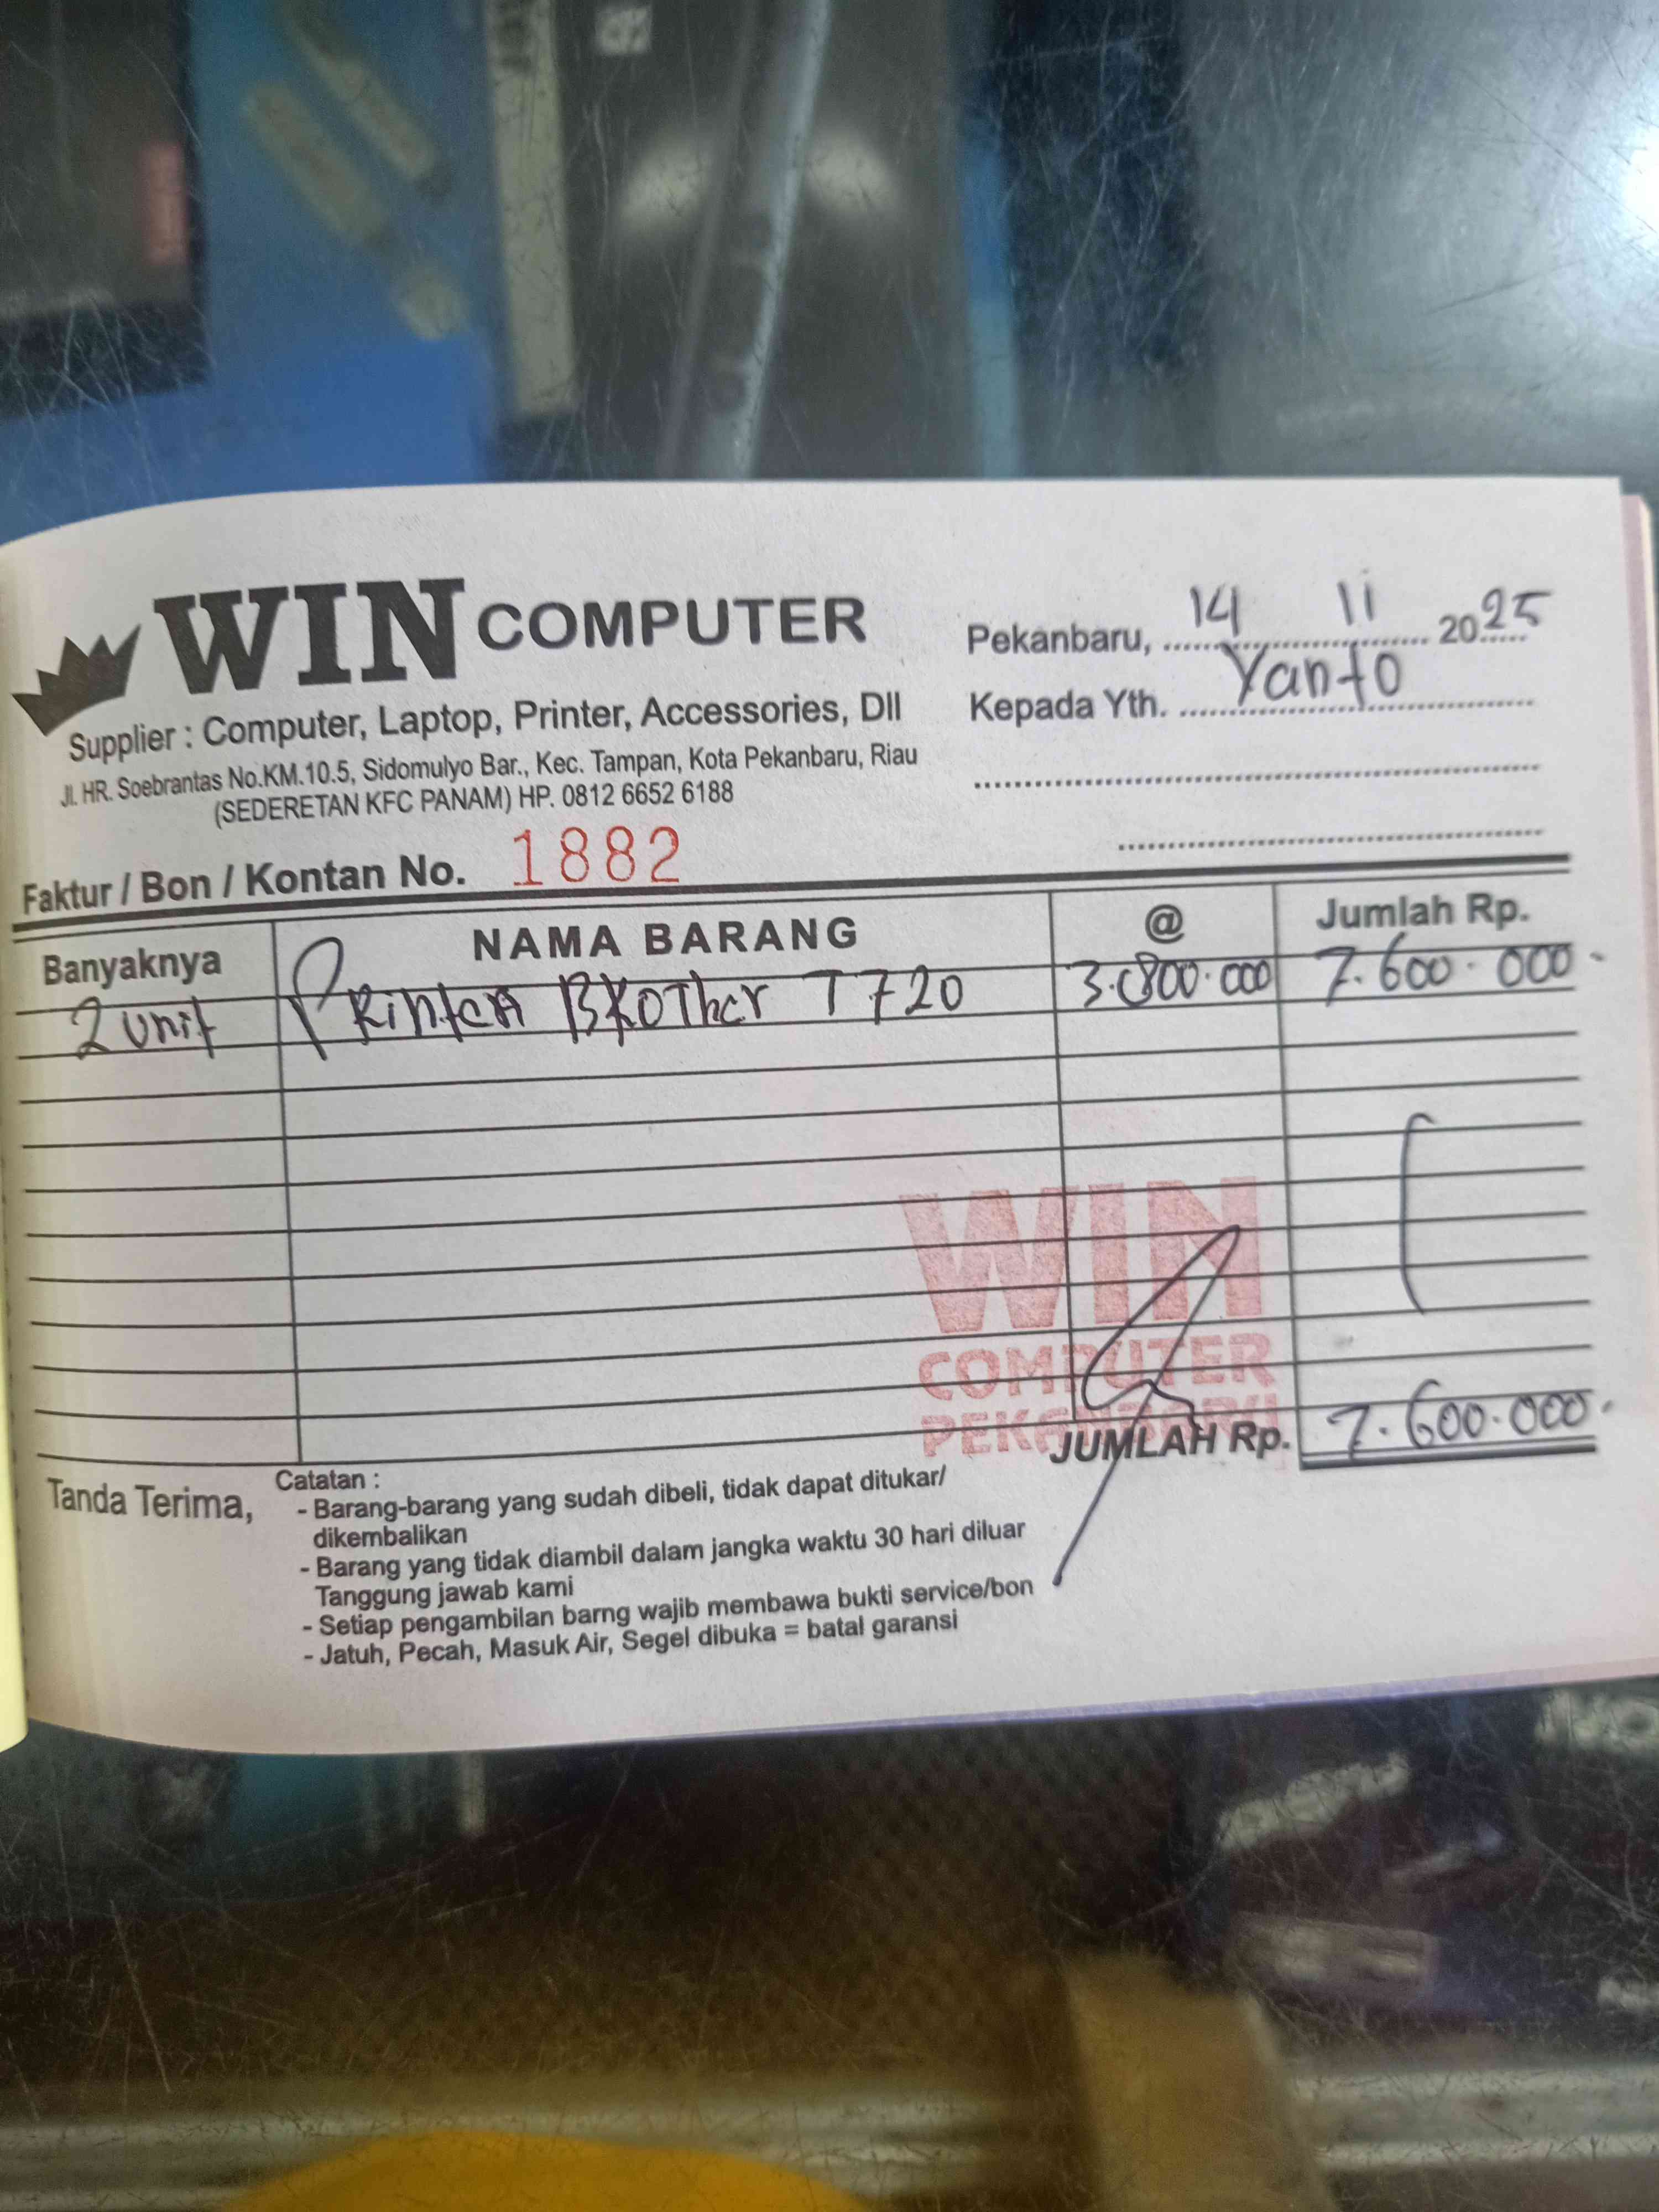 WIN COMPUTER
Supplier : Computer, Laptop, Printer, Accessories, Dll
Jl. HR. Soebrantas No.KM.10.5, Sidomulyo Bar., Kec. Tampan, Kota Pekanbaru, Riau
(SEDERETAN KFC PANAM) HP. 0812 6652 6188
Pekanbaru, 14 11 2025
Kepada Yth. Yanto
Faktur / Bon / Kontan No. 1882
Banyaknya NAMA BARANG @ Jumlah Rp.
2 unit Printer Brother T720 3.800.000 7.600.000.
WIN
COMPUTER
PEKANBARU
JUMLAH Rp. 7.600.000.
Tanda Terima,
Catatan :
- Barang-barang yang sudah dibeli, tidak dapat ditukar/
dikembalikan
- Barang yang tidak diambil dalam jangka waktu 30 hari diluar
Tanggung jawab kami
- Setiap pengambilan barng wajib membawa bukti service/bon
- Jatuh, Pecah, Masuk Air, Segel dibuka = batal garansi